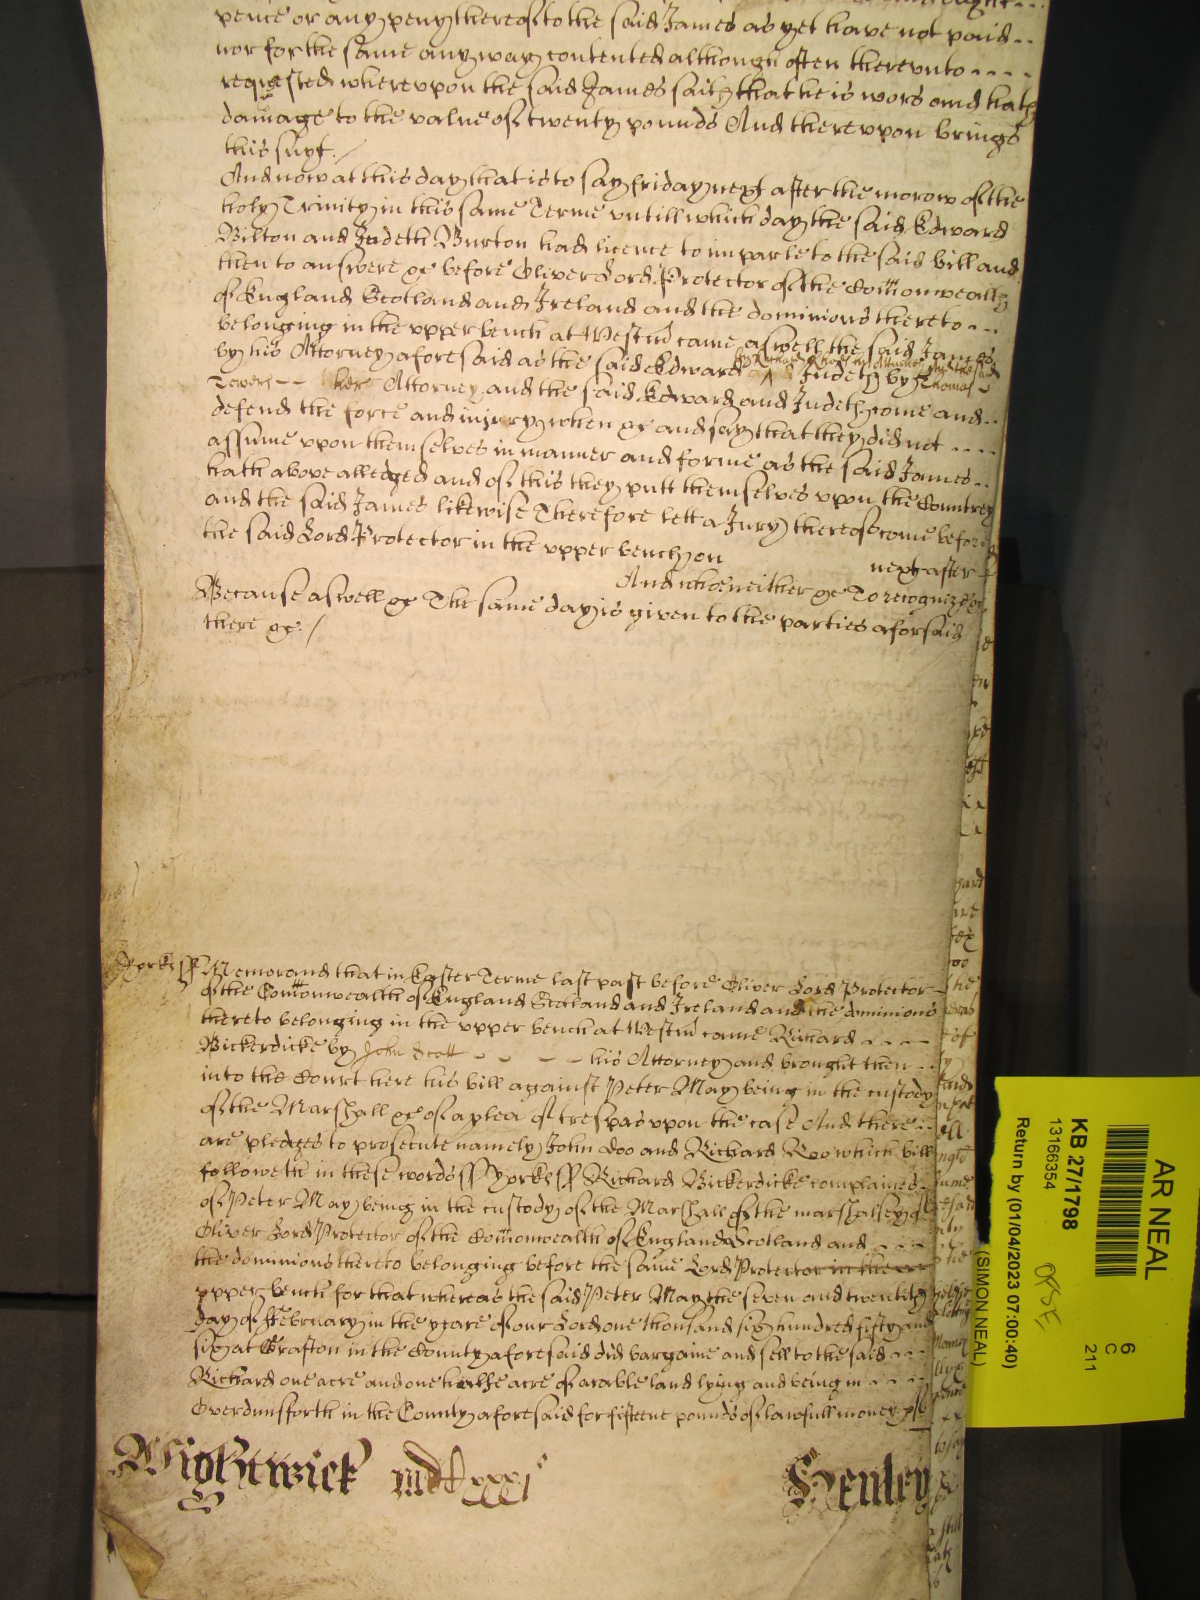 pence or any peny thereof to the said James as yet have not paid - -
nor for the same any way contented although often therevnto - - - -
requested wherevpon the said James saith that he is wors and hath
damage to the value of twenty pounds And therevpon brings
this suyt. /
And now at this day that is to say friday next after the morow of the
holy Trinity in this same Terme vntill which day the said Edward
Bilton and Judeth Burton had licence to imparle to the said bill and
then to answere &c before Oliver Lord Protector of the Comonwealth
of England Scotland and Ireland and the dominions thereto - - -
belonging in the vpper bench at Westm came aswell the said James
by his Attorney aforesaid as the said Edward ^ Judeth by Thomas
Towers - - her Attorney and the said Edward and Judeth come and - -
defend the force and iniury when &c and say that they did not - - - -
assume vpon themselves in manner and forme as the said James - -
hath above alledged and of this they putt themselves vpon the Countrey
and the said James likewise Therefore lett a Jury thereof come before
the said Lord Protector in the vpper bench on next after
And whoe neither &c To recognize &c
Because aswell &c The same day is given to the parties aforsaid
there &c. /
Yorks ss Memorand that in Easter Terme last past before Oliver Lord Protector
of the Comonwealth of England Scotland and Ireland and the dominions
thereto belonging in the vpper bench at Westm came Richard - - - -
Bickerdicke by John Scott - - - - his Attorney and brought then - -
into the Court here his bill against Peter May being in the custody
of the Marshall &c of a plea of trespas vpon the case And there - -
are pledges to prosecute namely John doo and Richard Roo which bill
followeth in these words ss Yorke ss Richard Bickerdicke complaines - -
of Peter May being in the custody of the Marshall of the marshalsey of
Oliver Lord Protector of the Comonwealth of England Scotland and - - - -
the dominions thereto belonging before the same Lord Protector in the
vpper bench for that whereas the said Peter May the seven and twentieth
day of February in the yeare of our Lord one thousand six hundred fifty and
six at Grafton in the County aforesaid did bargaine and sell to the said - - -
Richard one acre and one halfe acre of arable land lying and being in - - - -
Overdunsforth in the County aforesaid for fifteene pounds of lawfull money
Wightwick Henley
AR NEAL
6
C
211
KB 27/1798
13166354
Return by (01/04/2023 07:00:40)
(SIMON NEAL)